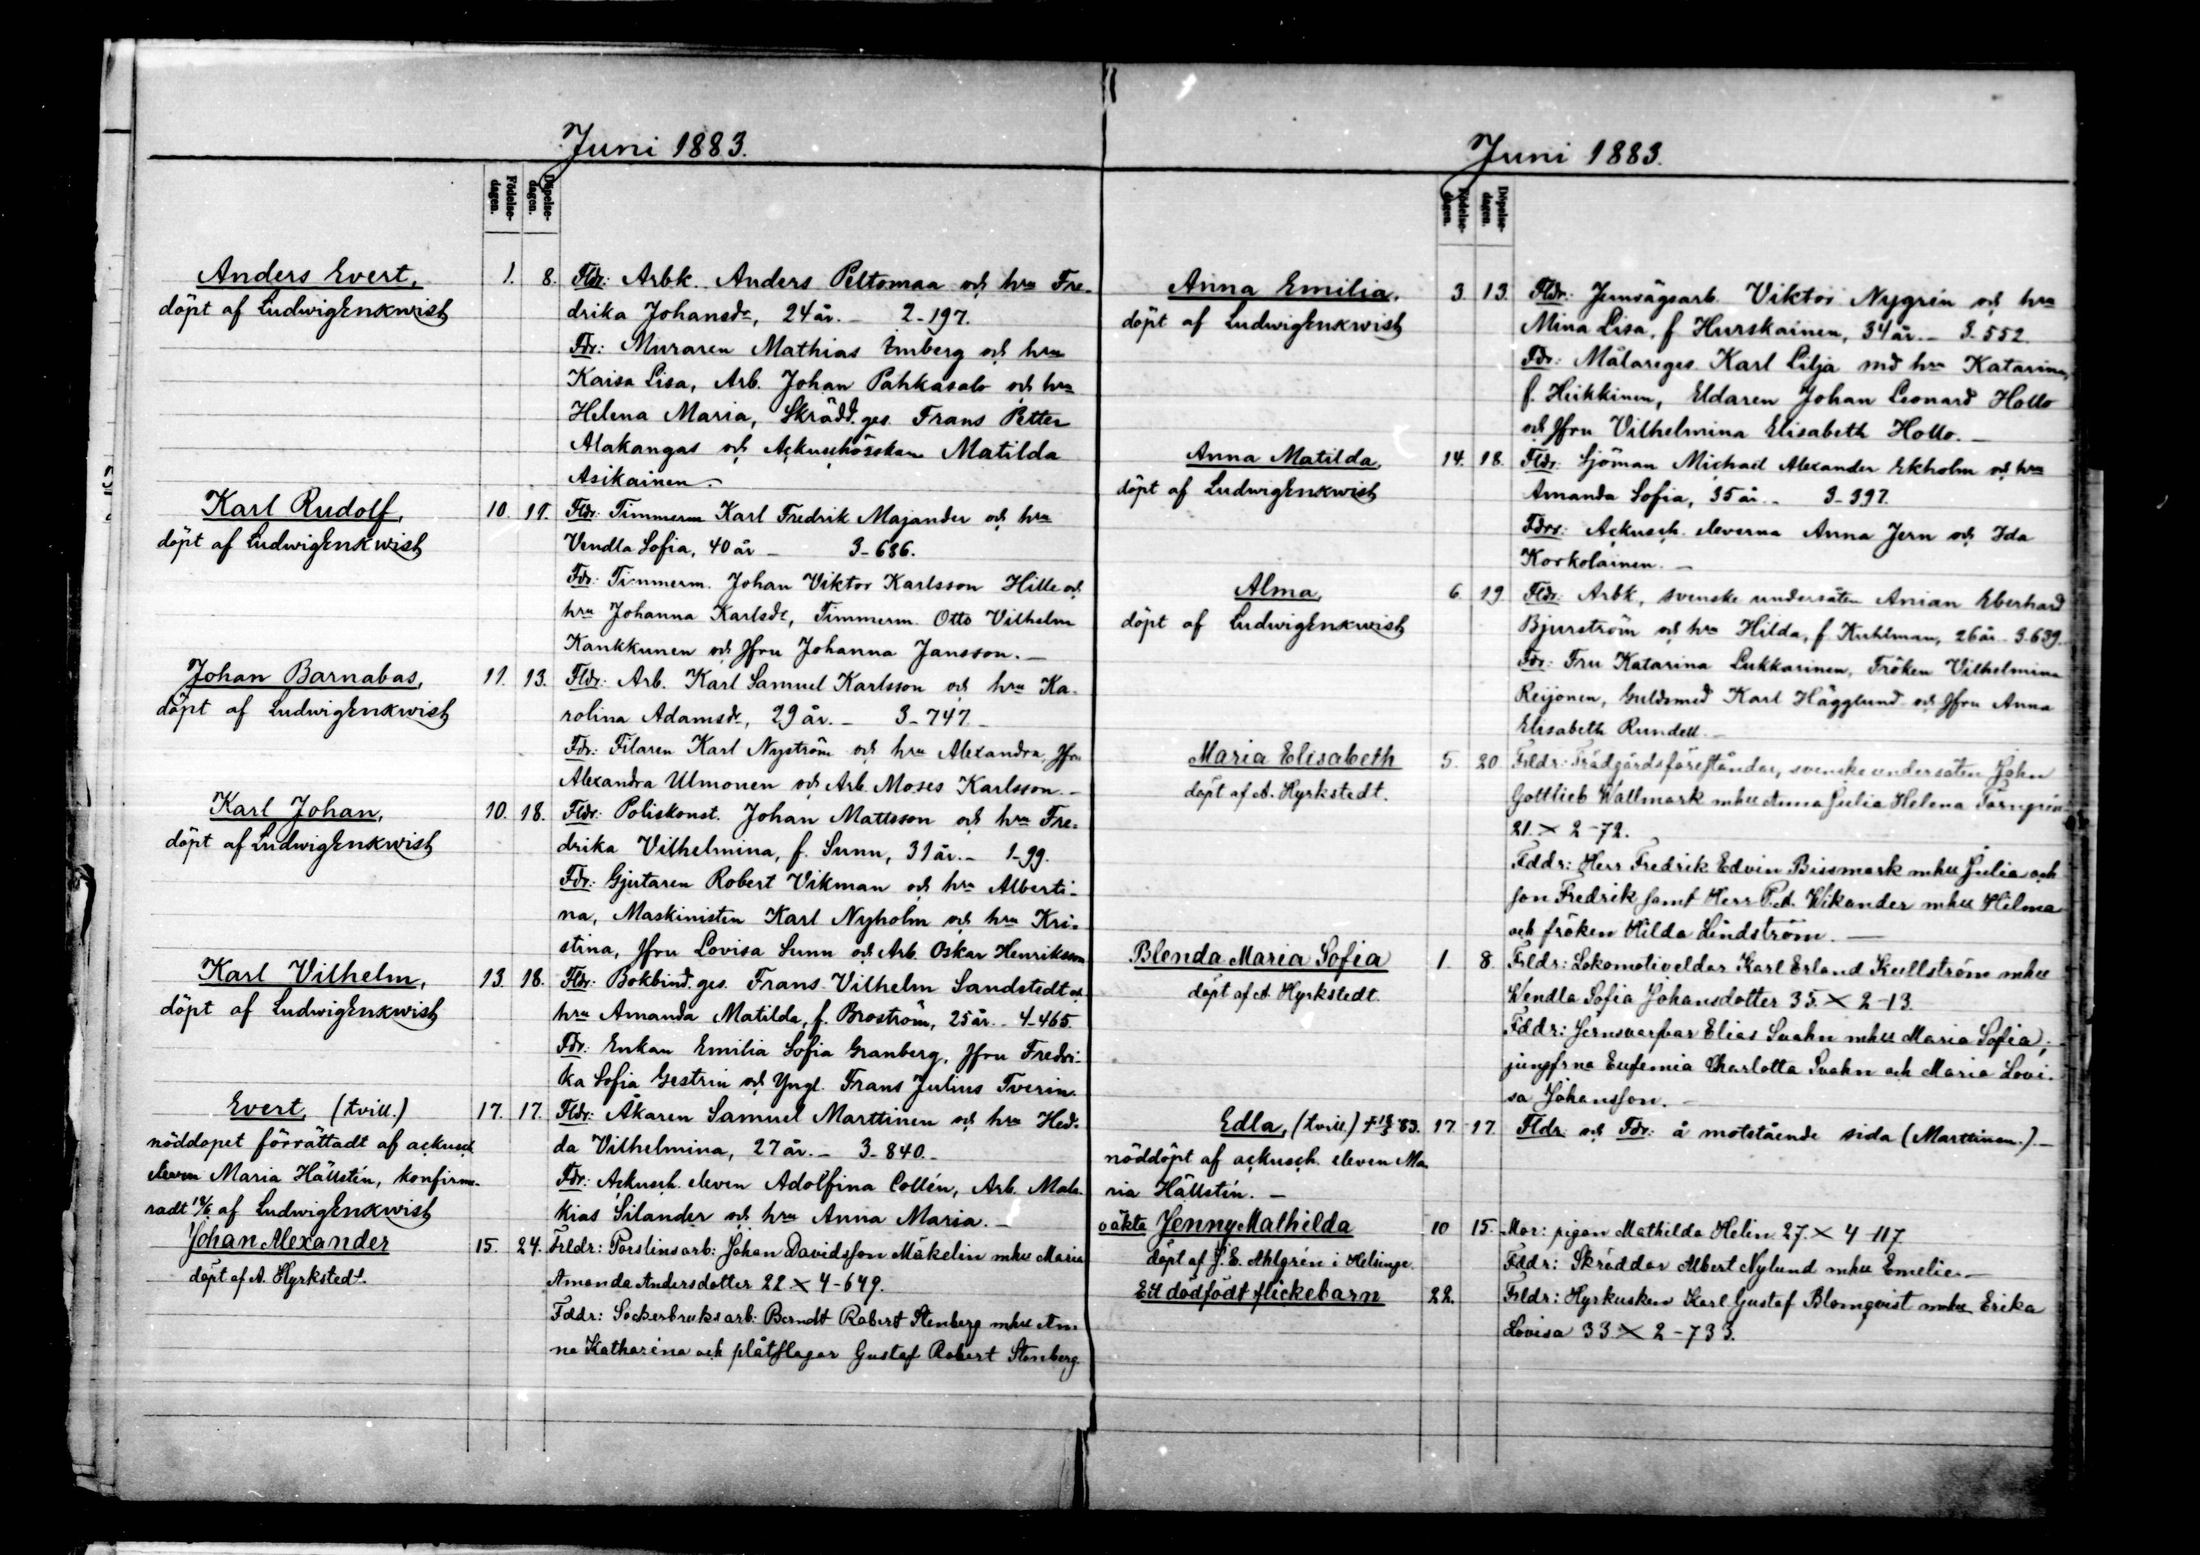 Juni 1883.
Födelse-
dagen.
Döpelse-
dagen.
Anders Evert,
döpt af Ludwig Enkwist
1. 8. Fldr: Arbk. Anders Peltomaa och hru Fre-
drika Johansdr, 24 år. – 2-197.
Fdr: Muraren Mathias Imberg och hru
Kaisa Lisa, Arb. Johan Pahkasalo och hru
Helena Maria, Skrädd.ges. Frans Petter
Alakangas och Ackuschörskan Matilda
Asikainen. –
Karl Rudolf,
döpt af Ludwig Enkwist
10. 17. Fldr: Timmerm Karl Fredrik Majander och hru
Vendla Sofia, 40 år – 3-636.
Fdr: Timmerm. Johan Viktor Karlsson Hille och
hru Johanna Karlsdr, Timmerm. Otto Vilhelm
Kankkunen och Jfru Johanna Jansson. –
Johan Barnabas,
döpt af Ludwig Enkwist
11. 13. Fldr: Arb. Karl Samuel Karlsson och hru Ka-
rolina Adamsdr, 29 år. – 3-747. –
Fdr: Filaren Karl Nyström och hru Alexandra, Jfru
Alexandra Ulmonen och Arb. Moses Karlsson. –
Karl Johan,
döpt af Ludwig Enkwist
10. 18. Fldr: Poliskonst. Johan Mattsson och hru Fre-
drika Vilhelmina, f. Sunn, 31 år. – 1-99.
Fdr: Gjutaren Robert Vikman och hru Alberti-
na, Maskinisten Karl Nyholm och hru Kri-
stina, Jfru Lovisa Sunn och Arb. Oskar Henriksson
Karl Vilhelm,
döpt af Ludwig Enkwist
13. 18. Fldr: Bokbind.ges. Frans Vilhelm Sandstedt och
hru Amanda Matilda, f. Broström, 25 år. – 4-465.
Fdr: Enkan Emilia Sofia Granberg, Jfru Fredri-
ka Sofia Gestrin och Yngl. Frans Julius Tverin.
Evert, (tvill.)
nöddopet förrättadt af ackusch.
eleven Maria Hällstén, konfirme-
radt 18/6 af Ludwig Enkwist
17. 17. Fldr: Åkaren Samuel Marttinen och hru Hed-
da Vilhelmina, 27 år. – 3-840. –
Fdr: Ackusch. eleven Adolfina Collén, Arb. Mala-
kias Silander och hru Anna Maria. –
Johan Alexander
döpt af A. Hyrkstedt.
15. 24. Frldr: Porslinsarb: Johan Davidsson Mäkelin mhu Maria
Amanda Andersdotter 22 × 4-649.
Fddr: Sockerbruksarb: Berndt Robert Stenberg mhu An-
na Katharina och plåtslagar Gustaf Robert Stenberg.
Juni 1883.
Födelse-
dagen.
Döpelse-
dagen.
Anna Emilia,
döpt af Ludwig Enkwist
3. 13. Fldr: Jernvägsarb. Viktor Nygrén och hru
Mina Lisa, f. Hurskainen, 34 år. – 3-552.
Fdr: Målareges. Karl Lilja md hru Katarina,
f. Heikkinen, Eldaren Johan Leonard Hollo
och Jfru Vilhelmina Elisabeth Hollo. –
Anna Matilda,
döpt af Ludwig Enkwist
14. 18. Fldr: Sjöman Michael Alexander Ekholm och hru
Amanda Sofia, 35 år. – 3-397.
Fdrr: Ackusch. eleverna Anna Jern och Ida
Korkolainen. –
Alma,
döpt af Ludwig Enkwist
6. 19. Fldr: Arbk, svenske undersåten Anian Eberhard
Bjurström och hru Hilda, f. Kuhlman, 26 år. 3-639.
Fdr: Fru Katarina Lukkarinen, Fröken Vilhelmina
Reijonen, Guldsmed Karl Hägglund och Jfru Anna
Elisabeth Rundell. –
Maria Elisabeth
döpt af A. Hyrkstedt.
5. 20. Frldr: Trädgårdsföreståndar, svenske undersåten John
Gottlieb Wallmark mhu Anna Julia Helena Törngrén
21. × 2-72.
Fddr: Herr Fredrik Edvin Bissmark mhu Julia och
son Fredrik samt Herr P.A. Wikander mhu Hilma
och fröken Hilda Lindström. –
Blenda Maria Sofia
döpt af A. Hyrkstedt.
1. 8. Frldr: Lokomotiveldar Karl Erland Kullström mhu
Wendla Sofia Johansdotter 35. × 2-13.
Fddr: Jernsvarfvar Elias Svahn mhu Maria Sofia,
jungfrna Eufemia Charlotta Svahn och Maria Lovi-
sa Johansson. –
Edla, (tvill.)
nöddöpt af ackusch. eleven Ma-
ria Hällstén. –
17. 17. Fldr och Fdr: å motstående sida (Marttinen.) –
oäkta Jenny Mathilda
döpt af J. E. Ahlgrén i Helsinge.
10 15. Mor: pigan Mathilda Helin 27. × 4-117.
Fddr: Skräddar Albert Nylund mhu Emelie. –
Ett dödfödt flickebarn
22. Frldr: Hyrkusken Karl Gustaf Blomqvist mhu Erika
Lovisa 33. × 2-733.